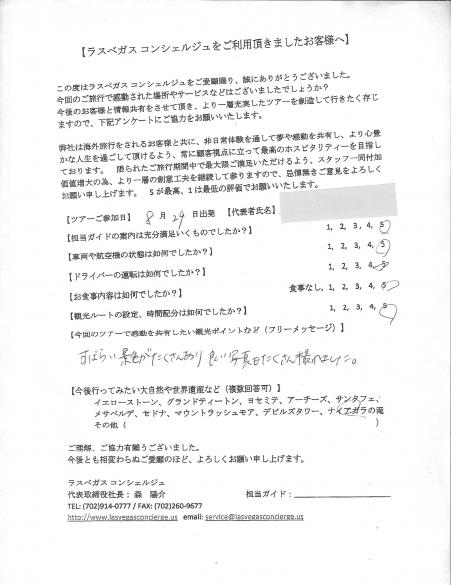 【ラスベガス コンシェルジュをご利用頂きましたお客様へ】
この度はラスベガス コンシェルジュをご愛顧賜り、誠にありがとうございました。
今回のご旅行で感動された場所やサービスなどはございましたでしょうか？
今後のお客様と情報共有をさせて頂き、より一層充実したツアーを創造して行きたく存じ
ますので、下記アンケートにご協力をお願いいたします。
弊社は海外旅行をされるお客様と共に、非日常体験を通して夢や感動を共有し、より心豊
かな人生を過ごして頂けるよう、常に顧客視点に立って最高のホスピタリティーを目指し
ております。 限られたご旅行期間中で最大限ご満足いただけるよう、スタッフ一同付加
価値増大の為、より一層の創意工夫を継続して参りますので、忌憚無きご意見をよろしく
お願い申し上げます。 ５が最高、１は最低の評価でお願いいたします。
【ツアーご参加日】 8 月 29 日出発 【代表者氏名】
【担当ガイドの案内は充分満足いくものでしたか？】 1, 2, 3, 4, 5
【車両や航空機の状態は如何でしたか？】 1, 2, 3, 4, 5
【ドライバーの運転は如何でしたか？】 1, 2, 3, 4, 5
【お食事内容は如何でしたか？】 食事なし, 1, 2, 3, 4, 5
【観光ルートの設定、時間配分は如何でしたか？】 1, 2, 3, 4, 5
【今回のツアーで感動を共有したい観光ポイントなど（フリーメッセージ）】
すばらしい景色がたくさんあり 良い写真もたくさん撮れました。
【今後行ってみたい大自然や世界遺産など（複数回答可）】
イエローストーン、グランドティートン、ヨセミテ、アーチーズ、サンタフェ、
メサベルデ、セドナ、マウントラッシュモア、デビルズタワー、ナイアガラの滝
その他（ ）
ご理解、ご協力有難うございました。
今後とも相変わらぬご愛顧のほど、よろしくお願い申し上げます。
ラスベガス コンシェルジュ
代表取締役社長： 森 陽介 担当ガイド：
TEL: (702)914-0777 / FAX: (702)260-9677
http://www.lasvegasconcierge.us email: service@lasvegasconcierge.us